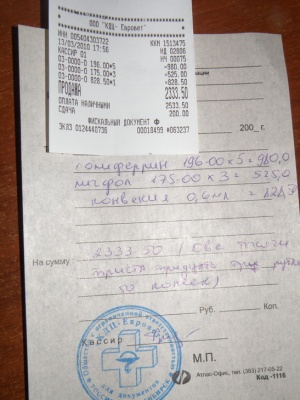 ООО "КДЦ- Евровет"
ИНН 005404303722 ККМ 1513475
13/03/2010 17:56 ИД 02806
КАССИР 01 НЧ 00075
03-0000-0 196.00*5 =980.00
03-0000-0 175.00*3 =525.00
03-0000-0 828.50*1 =828.50
ПРОДАЖА 2333.50
ОПЛАТА НАЛИЧНЫМИ 2533.50
СДАЧА 200.00
ФИСКАЛЬНЫЙ ДОКУМЕНТ Ф
ЭКЛЗ 0124440736 00018499 #063237
200_ г.
196-00 x 5 = 980,0
175-00 x 3 = 525,0
0,6мл =
2333 50 (Две тысячи
На сумму триста тридцать три рубля
50 копеек)
Руб. Коп.
Кассир
М.П.
КДЦ-Евровет
для документов
Атлас-Офис, тел. (383) 217-65-22
Код -1116